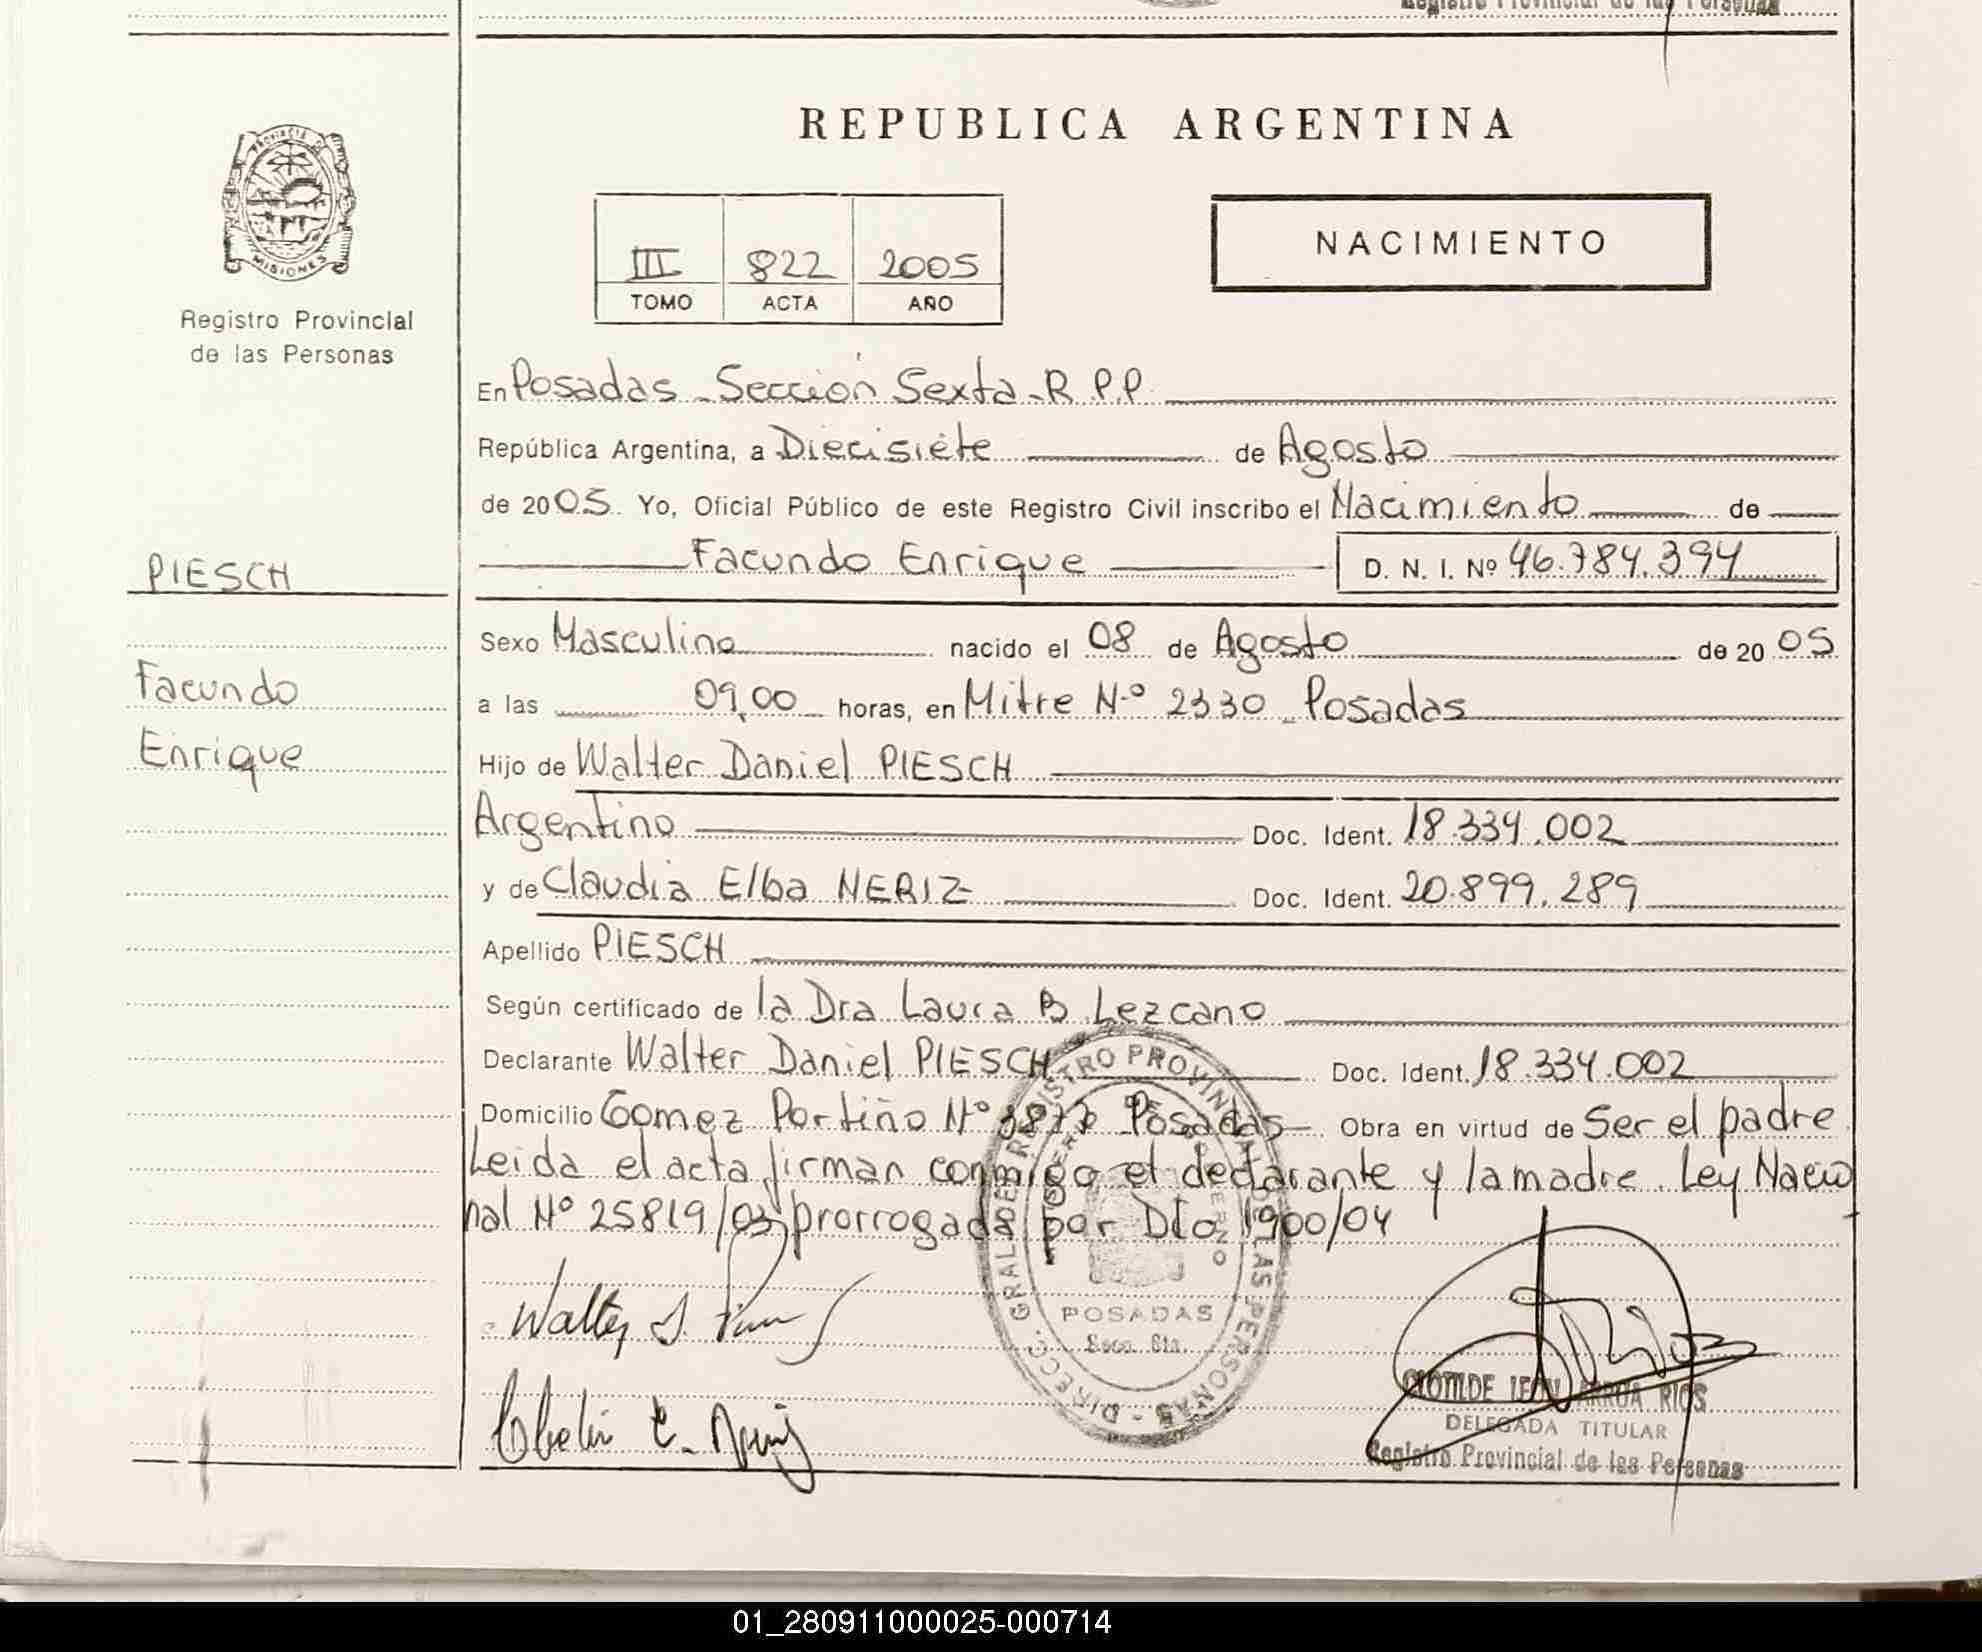 Registro Provincial de las Personas
REPUBLICA ARGENTINA
PROVINCIA D
MISIONES
Registro Provincial
de las Personas
III 822 2005
TOMO ACTA AÑO
NACIMIENTO
En Posadas - Sección Sexta - R.P.P.
República Argentina, a Diecisiete de Agosto
de 2005. Yo, Oficial Público de este Registro Civil inscribo el Nacimiento de
Facundo Enrique D. N. I. Nº 46.784.394
PIESCH
Facundo
Enrique
Sexo Masculino nacido el 08 de Agosto de 2005
a las 09,00 horas, en Mitre Nº 2330 - Posadas
Hijo de Walter Daniel PIESCH
Argentino Doc. Ident. 18.334.002
y de Claudia Elba NERIZ Doc. Ident. 20.899.289
Apellido PIESCH
Según certificado de la Dra Laura B. Lezcano
Declarante Walter Daniel PIESCH Doc. Ident. 18.334.002
Domicilio Gomez Portiño Nº Posadas - Obra en virtud de Ser el padre
Leida el acta firman conmigo el declarante y la madre. Ley Nacio
nal Nº 25819/03 prorrogada por Dto 1900/04
DIRECC. GRAL. DEL REGISTRO PROVINCIAL DE LAS PERSONAS
POSADAS
Secc. 6ta.
Walter D.
CLOTILDE LEON ARRUA RIOS
DELEGADA TITULAR
Registro Provincial de las Personas
01_280911000025-000714